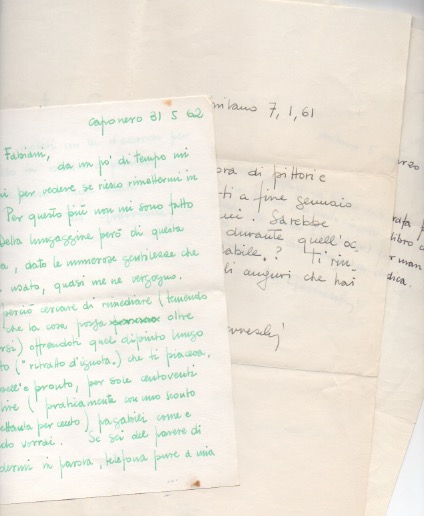 caponero 31 5 62
Fabiani,
da un po' di tempo mi
per vedere se riesco rimettermi in
Per questo più non mi sono fatto
della lungaggine però di questa
, dato le numerose gentilezze che
usato, quasi me ne vergogno.
perciò cercare di rimediare (tenendo
che la cosa possa oltre
offrendoti quel dipinto lungo
("ritratto d'ignota") che ti piaceva.
è pronto, per sole centoventi
lire (praticamente con uno sconto
per cento) pagabili come e
vorrai. Se sei del parere di
in parola, telefona pure a mia
milano 7, 1, 61
di pittori e
a fine gennaio
Sarebbe
durante quell'oc
? Ti rin
auguri che hai
libro